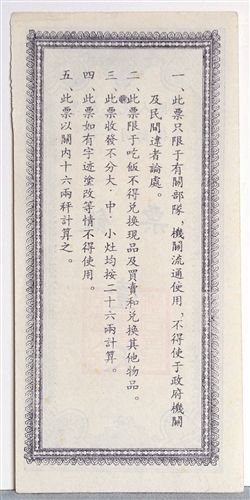 一、此票只限于有關部隊，機關流通使用，不得使于政府機關
及民間違者論處。
二、此票限于吃飯不得兑換現品及買賣和兑換其他物品。
三、此票收發不分大、中、小灶均按二十六兩計算。
四、此票如有字迹塗改等情不得使用。
五、此票以關内十六兩秤計算之。